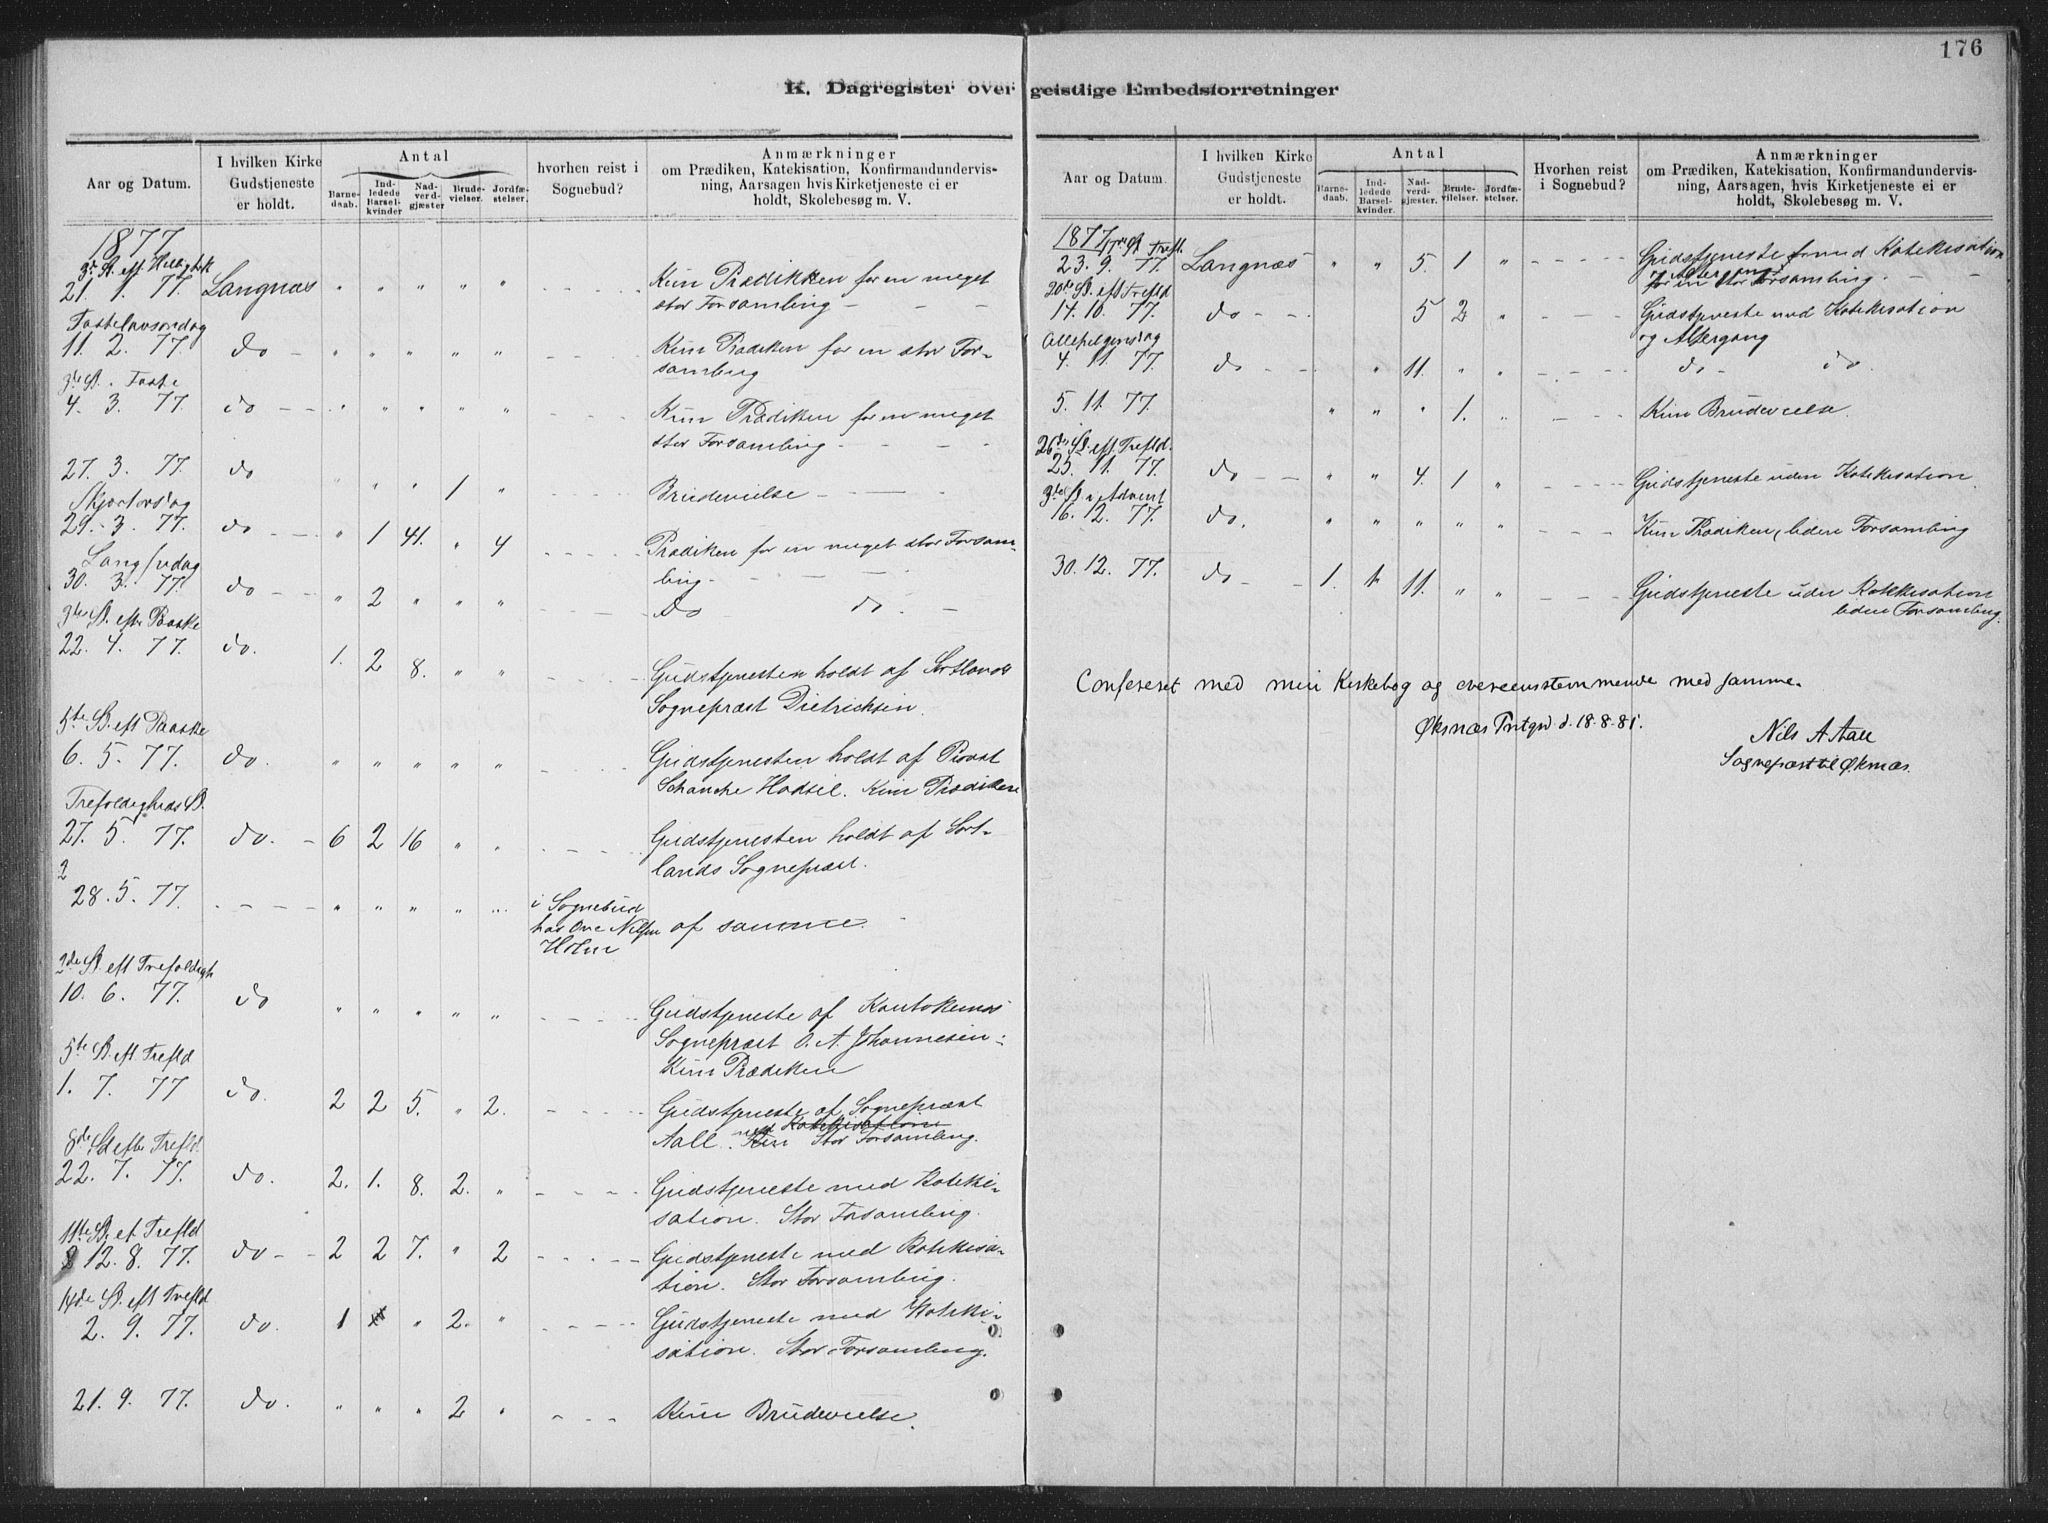 176
K. Dagregister over geistlige Embedsforretninger
Aar og Datum.
I hvilken Kirke Gudstjeneste er holdt.
Antal
Barnedaab.
Indledede Barselkvinder
Nadverdgjæster
Brudevielser.
Jordfæstelser.
hvorhen reist i Sognebud?
Anmærkninger
om Prædiken, Katekisation, Konfirmandundervisning, Aarsagen hvis Kirketjeneste ei er holdt, Skolebesøg m. V.
1877
3die S. eft Hellig3k
21. 1. 77. Langnæs " " " " " Kun Prædikken for en meget
stor Forsamling
Fastelavnsøndag
11. 2. 77. do " " " " " Kun Prædiken for en stor For-
samling
3de S. i Faste
4. 3. 77. do " " " " " Kun Prædiken for en meget
stor Forsamling
27. 3. 77. do " " " 1 " Brudevielse
Skjærtorsdag
29. 3. 77. do " 1 41. " 4 Prædiken for en meget stor Forsam-
ling
Langfredag
30. 3. 77. do " 2 " " " do do.
3de S. efter Paaske
22. 4. 77. do. 1. 2 8. " " Gudstjenesten holdt af Sortlands
Sognepræst Dietrichsen.
5te S. eft Paaske
6. 5. 77. do. " " " " " Gudstjenesten holdt af Provst
Schanche Hadsel. Kun Prædiken
Trefoldigheds S.
27. 5. 77. do. 6 2 16 " " Gudstjenesten holdt af Sort-
lands Sognepræst.
2
28. 5. 77. " " " " i Sognebud
hos Ove Nilsen af samme.
Holm
2de S. eft Trefoldigh
10. 6. 77. do " " " " " Gudstjeneste af Kautokeinos
Sognepræst O. A. Johannesen:
Kun Prædiken
5te S. eft Trefld
1. 7. 77 do. 2 2 5. " 2. Gudstjeneste af Sognepræst
Aall. med Katekisatione Stor Forsamling.
8de S. efter Trefld.
22. 7. 77. do. 2. 1. 8. 2. " Gudstjeneste med Kateki-
sation. Stor Forsamling.
11te S. et Trefld
12. 8. 77. do 2 2 7. " 2 Gudstjeneste med Katekisa-
tion. Stor Forsamling.
14de S. eft Trefld
2. 9. 77. do. 1 " 2. " Gudstjeneste med Kateki-
sation. Stor Forsamling.
21. 9. 77. do. " " " 2 " Kun Brudevielse.
Aar og Datum.
I hvilken Kirke Gudstjeneste er holdt.
Antal
Barnedaab.
Indledede Barselkvinder.
Nadverdgjæster.
Brudevielser.
Jordfæstelser.
Hvorhen reist i Sognebud?
Anmærkninger
om Prædiken, Katekisation, Konfirmandundervisning, Aarsagen, hvis Kirketjeneste ei er holdt, Skolebesøg m. V.
1877 17de S. Trefl.
23. 9. 77. Langnæs " " 5. 1 " Gudstjeneste med Katekisation
og Altergang
for en stor Forsamling.
20de S. eft Trefld
14. 10. 77. do 5 2 " Gudstjeneste med Katekisation
og Altergang
Allehelgensdag
4. 11. 77. do " 11. " " do do.
5. 11. 77. " " " 1. " Kun Brudevielse.
26de S. eft. Trefld.
25. 11. 77. do " " 4. 1 " Gudstjeneste uden Katekisation.
3de S. i Advent
16. 12. 77. do. " " " " " Kun Prædiken, liden Forsamling
30. 12. 77. do 1. 1. 11. " " Gudstjeneste uden Katekisation
liden Forsamling.
Confereret med min Kirkebog og overeensstemmende med samme.
Øksnæs Prstgrd d. 18-8-81.
Nils A Aall
Sognepræst til Øksnæs.